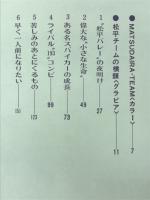 ● MATSUDAIRA-TEAM〈カラー〉 7
● 松平チームの横顔〈グラビア〉 11
1 “松平バレー”の夜明け 27
2 偉大な“小さな生命” 49
3 ある名スパイカーの成長 73
4 ライバル・“193”コンビ 99
5 苦しみのあとにくるもの 123
6 早く一人前になりたい